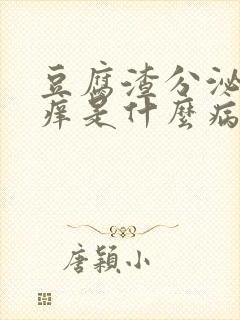 豆腐渣分泌
痒是什麼病
唐颖小